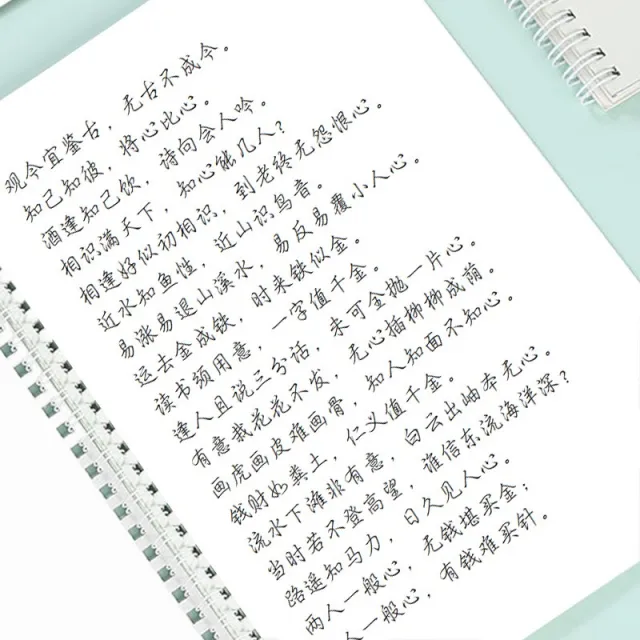 观今宜鉴古，无古不成今。
知己知彼，将心比心。
酒逢知己饮，诗向会人吟。
相识满天下，知心能几人？
相逢好似初相识，到老终无怨恨心。
近水知鱼性，近山识鸟音。
易涨易退山溪水，易反易覆小人心。
运去金成铁，时来铁似金。
读书须用意，一字值千金。
逢人且说三分话，未可全抛一片心。
有意栽花花不发，无心插柳柳成荫。
画虎画皮难画骨，知人知面不知心。
钱财如粪土，仁义值千金。
流水下滩非有意，白云出岫本无心。
当时若不登高望，谁信东流海洋深？
路遥知马力，日久见人心。
两人一般心，无钱堪买金；
人一般心，有钱难买针。